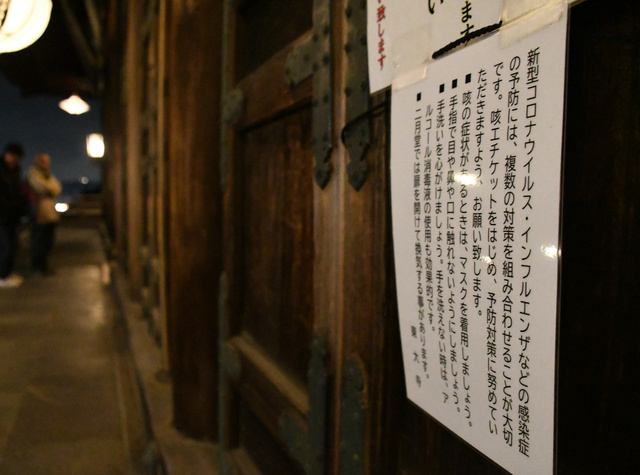 新型コロナウイルス・インフルエンザなどの感染症
の予防には、複数の対策を組み合わせることが大切
です。咳エチケットをはじめ、予防対策に努めてい
ただきますよう、お願い致します。
■咳の症状があるときは、マスクを着用しましょう。
■手指で目や鼻や口に触れないようにしましょう。
■手洗いを心がけましょう。手を洗えない時は、ア
ルコール消毒液の使用も効果的です。
■二月堂では扉を開けて換気する事があります。
東大寺
ます
い
致します